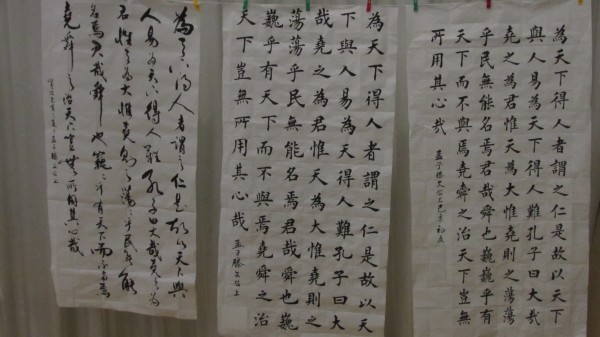 為天下得人者謂之仁是故以天下
與人易為天下得人難孔子曰大哉
堯之為君惟天為大惟堯則之蕩蕩
乎民無能名焉君哉舜也巍巍乎有
天下而不與焉堯舜之治天下豈無
所用其心哉 孟子滕文公上己亥初夏
為天下得人者謂之仁是故以天
下與人易為天得人難孔子曰大
哉堯之為君惟天為大惟堯則之
蕩蕩乎民無能名焉君哉舜也巍
巍乎有天下而不與焉堯舜之治
天下豈無所用其心哉 孟子滕文公上
為天下得人者謂之仁是故以天下與
人易為天下得人難孔子曰大哉堯之為
君惟天為大惟堯則之蕩蕩乎民無能
名焉君哉舜也巍巍乎有天下而不與焉
堯舜之治天下豈無所用其心哉